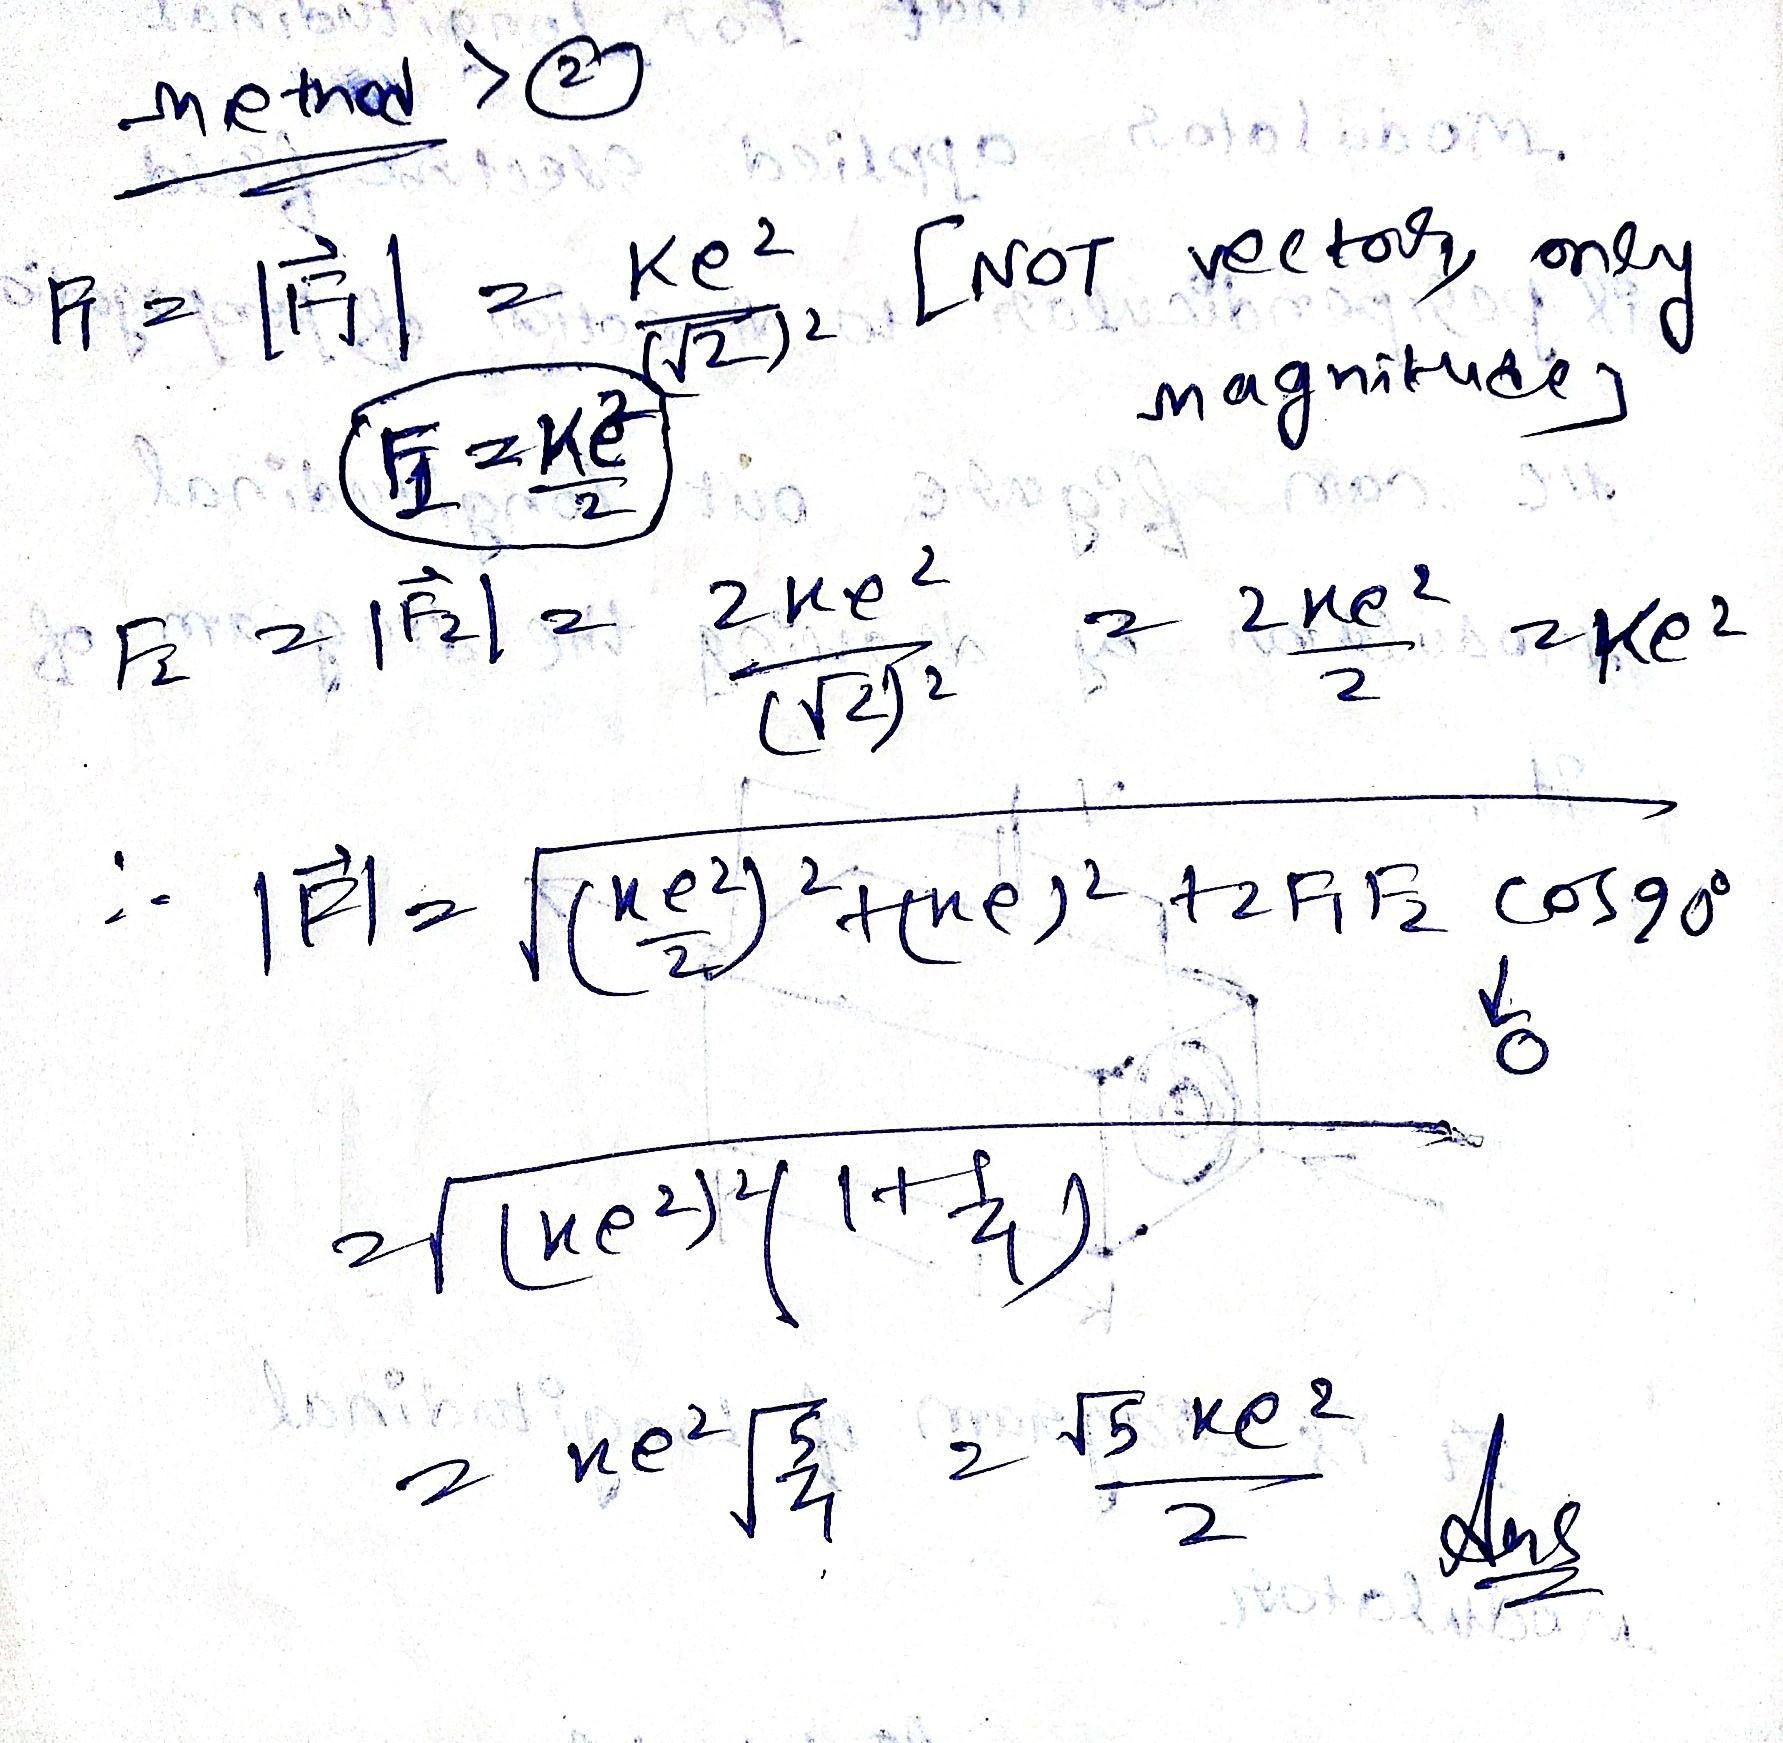 Method > ②
F₁ = |F⃗₁| = Ke²/(√2)² [NOT vectors, only
magnitude]
F₁ = Ke²/2
F₂ = |F⃗₂| = 2Ke²/(√2)² = 2Ke²/2 = Ke²
∴ |F⃗| = √((Ke²/2)² + (Ke)² + 2F₁F₂ cos90°
0
= √((Ke²)² (1 + 1/4)).
= Ke² √5/4 = √5 Ke²/2 Ans